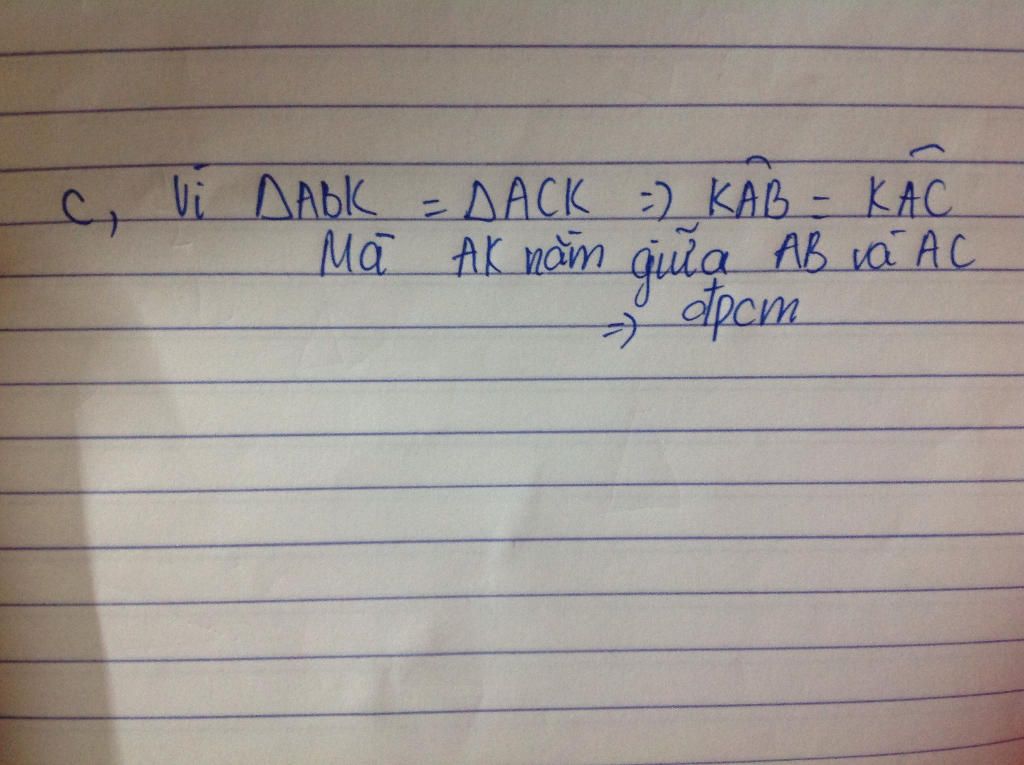 c, Vì ΔABK = ΔACK => KÂB = KÂC
Mà AK nằm giữa AB và AC
=> đpcm